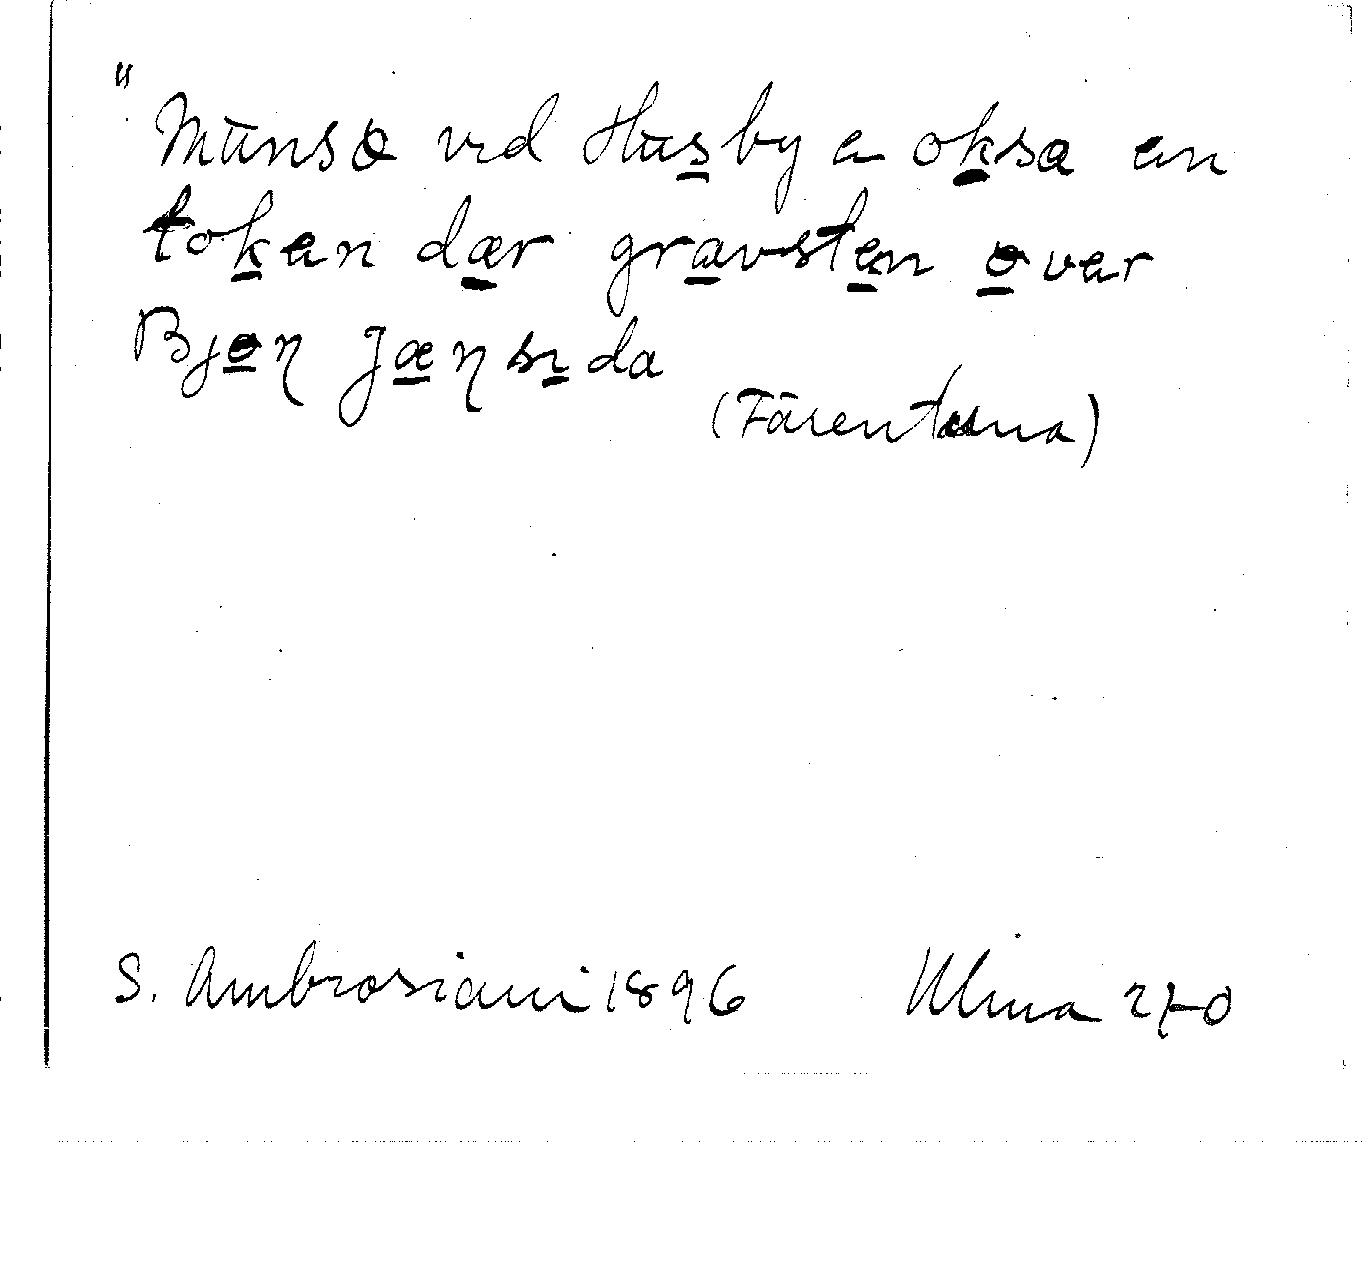 "
Munsø vid Husby a oksa en
token dær gravsten øvar
Bjøɳ Jæɳsida
(Färentuna)
S. Ambrosiani 1896 Ulma 270